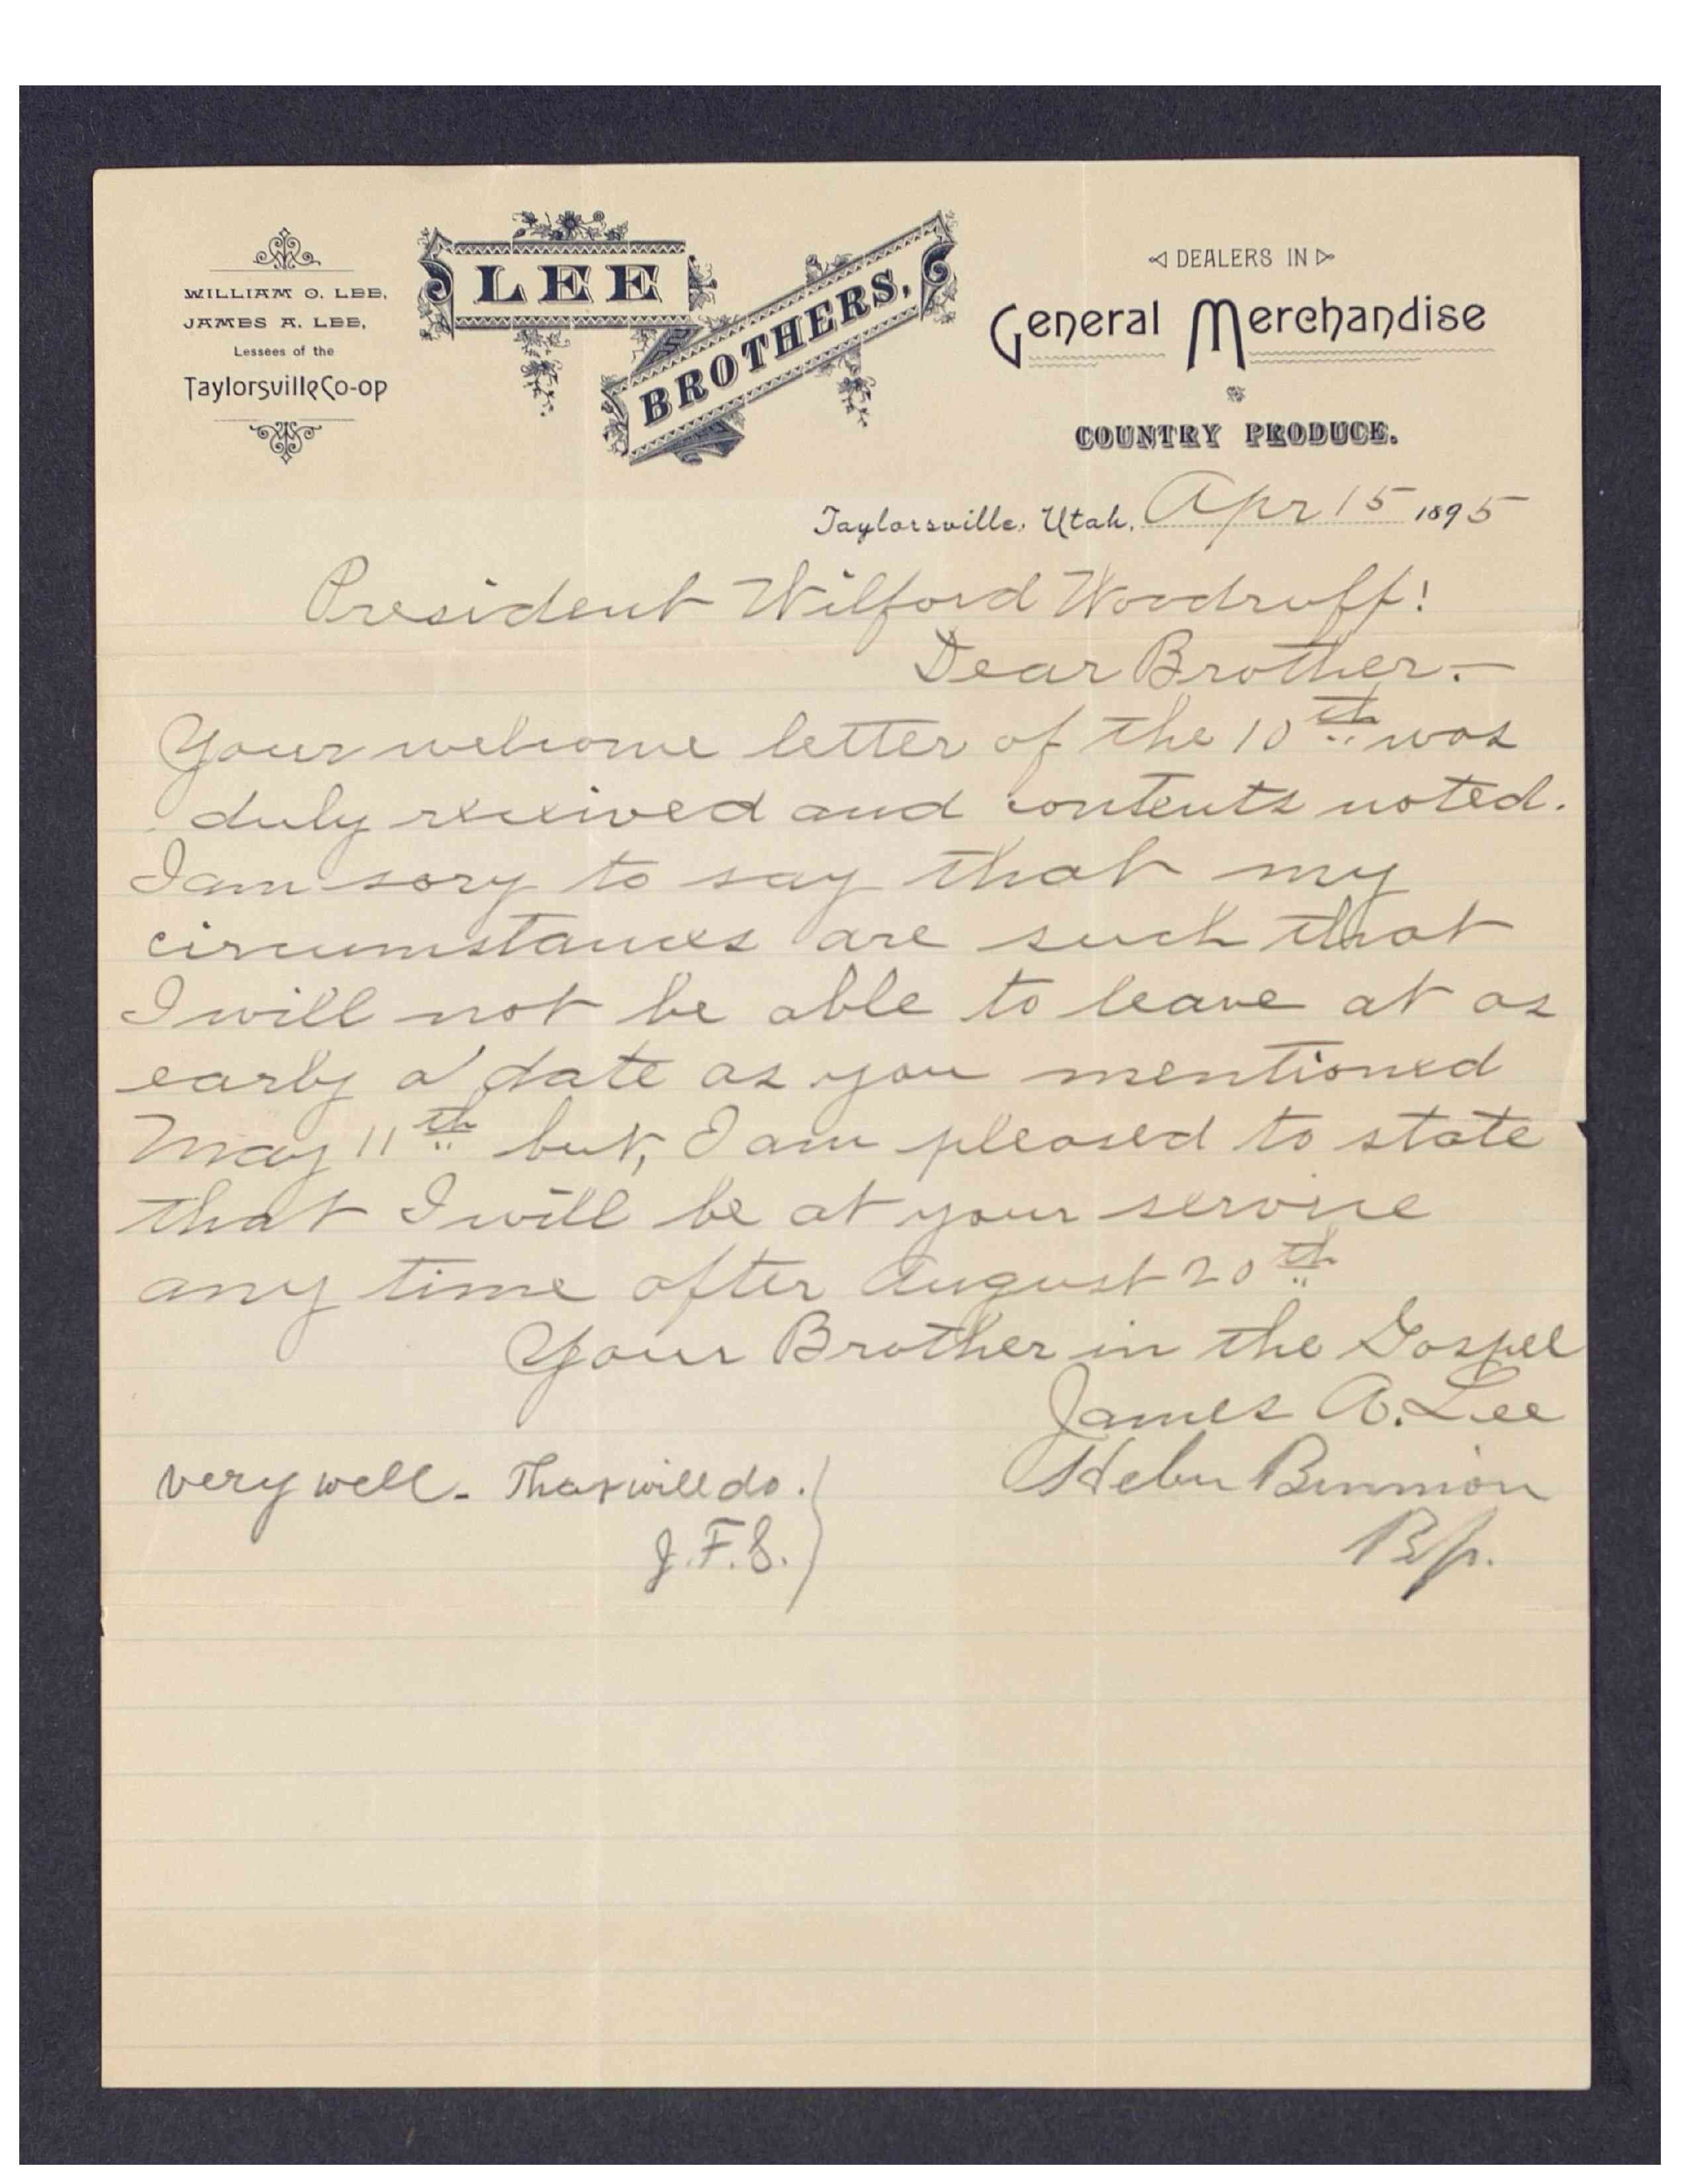 WILLIAM O. LEE,
JAMES A. LEE,
Lessees of the
Taylorsville Co-op
LEE
BROTHERS.
DEALERS IN
General Merchandise
&
COUNTRY PRODUCE.
Taylorsville, Utah, Apr 15 1895
President Wilford Woodruff!
Dear Brother.-
Your welcome letter of the 10th was
duly received and contents noted.
I am sory to say that my
circumstances are such that
I will not be able to leave at as
early a date as you mentioned
May 11th but, I am pleased to state
that I will be at your service
any time after August 20th
Your Brother in the Gospel
James A. Lee
Heber Bennion
Bp.
Very well - That will do.
J.F.S.